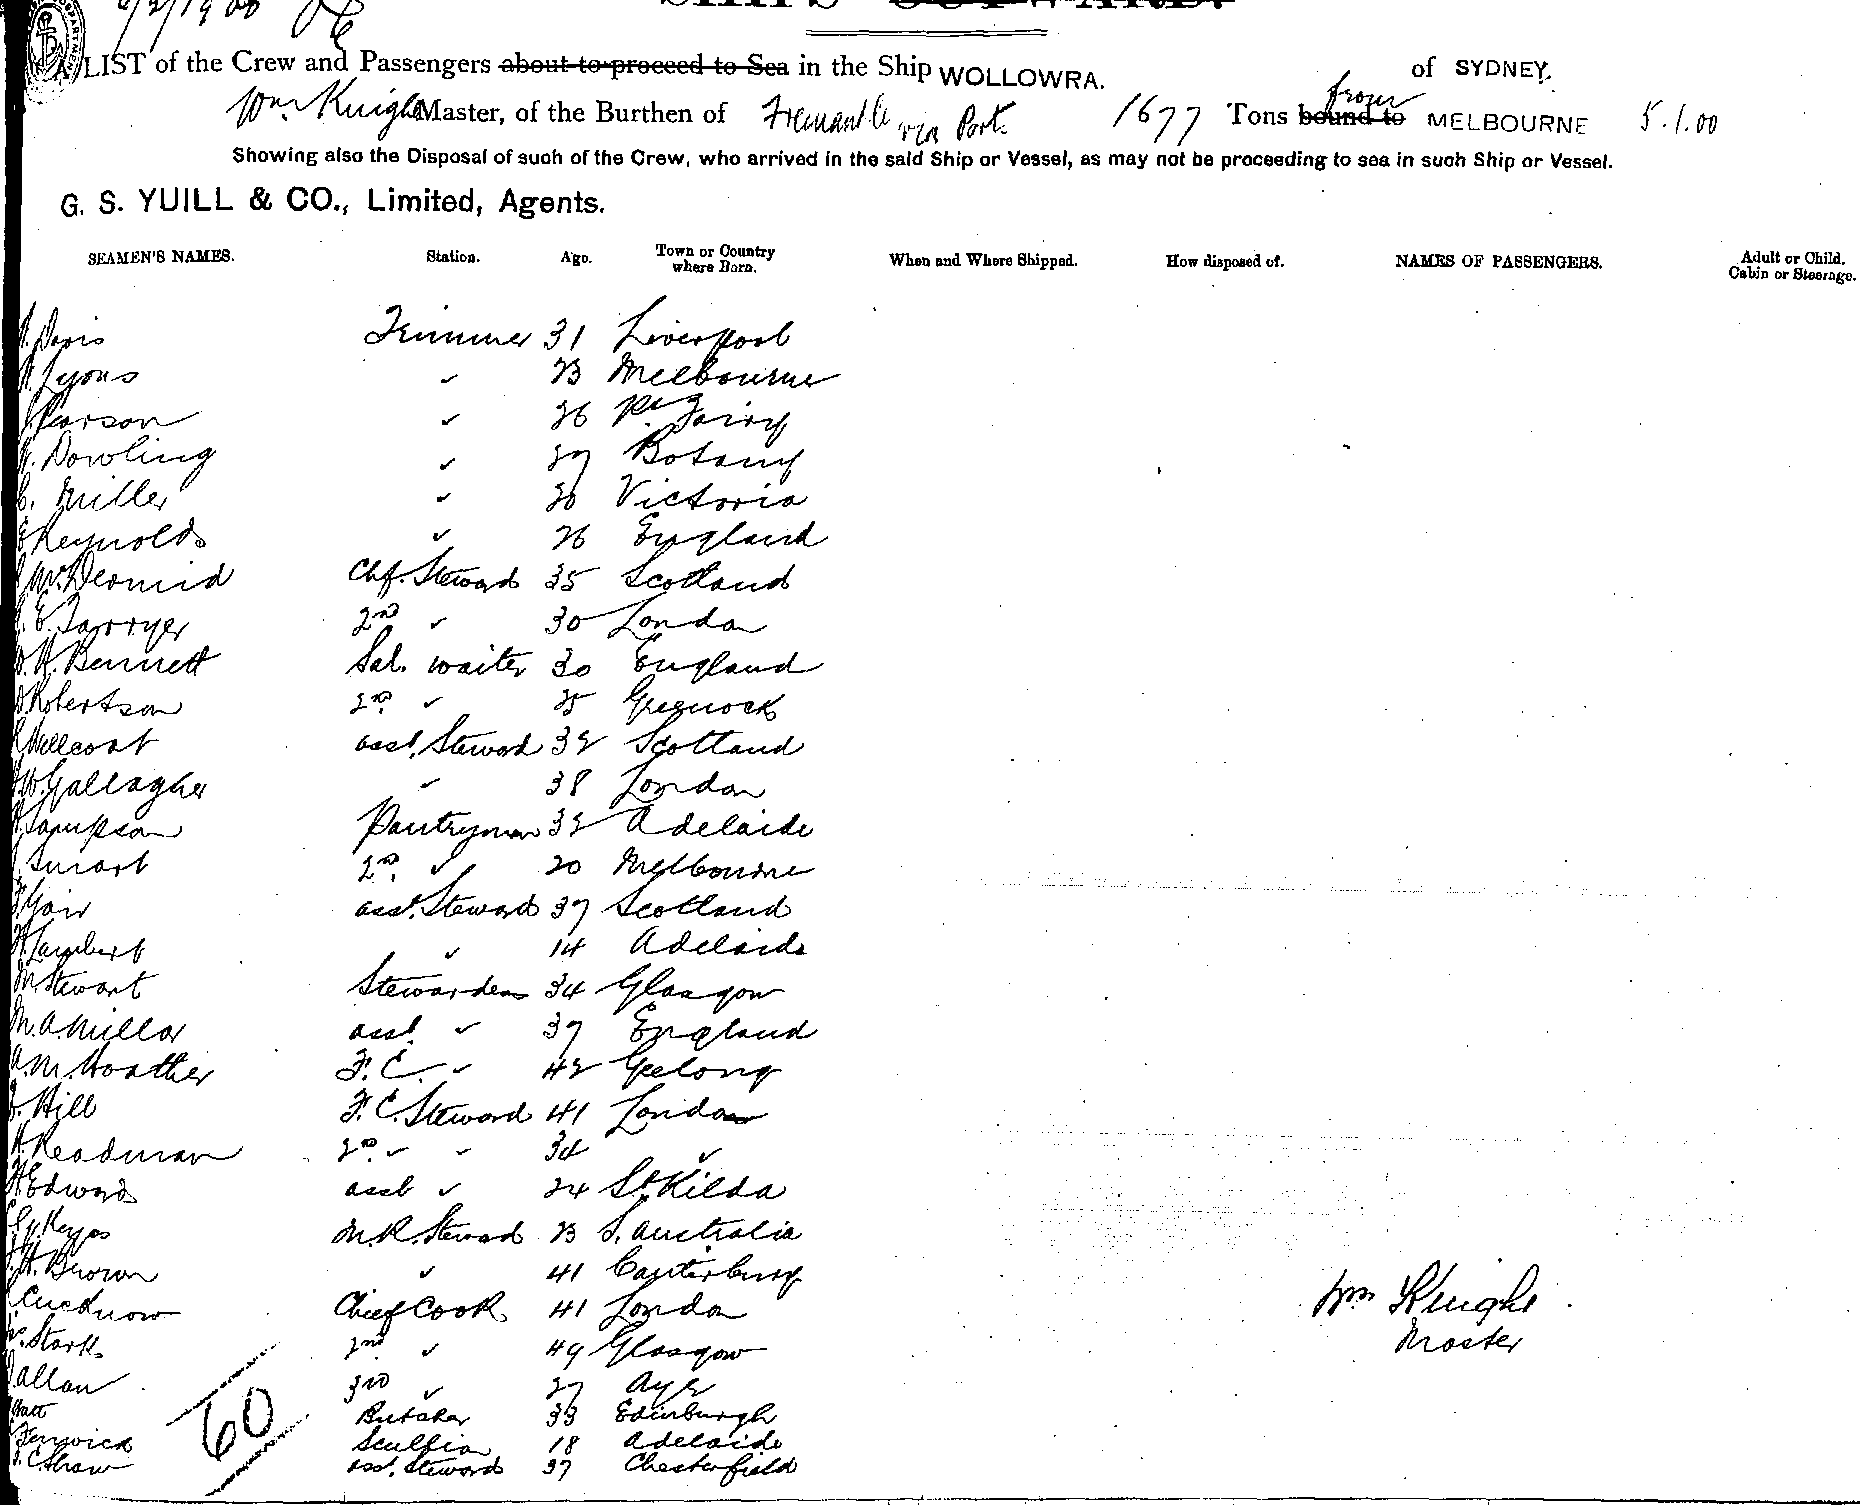 6/2/1900
SHIP'S OUTWARD.
A LIST of the Crew and Passengers about to proceed to Sea in the Ship WOLLOWRA. of SYDNEY.
Wm Knight Master, of the Burthen of Fremantle via Port. 1677 Tons bound to from MELBOURNE 5.1.00
Showing also the Disposal of such of the Crew, who arrived in the said Ship or Vessel, as may not be proceeding to sea in such Ship or Vessel.
G. S. YUILL & CO., Limited, Agents.
SEAMEN'S NAMES. Station. Age. Town or Country where Born. When and Where Shipped. How disposed of. NAMES OF PASSENGERS. Adult or Child. Cabin or Steerage.
Davis Trimmer 31 Liverpool
Lyons ✓ 23 Melbourne
Pearson ✓ 26 Pt. Fairy
Dowling ✓ 27 Botany
C. Miller ✓ 20 Victoria
Reynolds ✓ 26 England
McDermid Chf. Steward 35 Scotland
E. Farryer 2nd ✓ 30 London
H. Bennett Sal. waiter 30 England
Robertson 2nd ✓ 25 Greenock
Wellcoat asst. Steward 32 Scotland
W. Gallagher ✓ 38 London
Sampson Pantryman 32 Adelaide
Smart 2nd ✓ 20 Melbourne
Yair asst. Steward 37 Scotland
H. Lambert ✓ 14 Adelaide
M. Stewart Stewardess 34 Glasgow
M. A. Millar asst. ✓ 37 England
A. M. Hoather F. C. ✓ 42 Geelong
Hill F. C. Steward 41 London
H. Readman 2nd ✓ ✓ 34 ✓
H. Edwards asst ✓ 24 St. Kilda
Keyes M. R. Steward 23 S. Australia
H. Brown ✓ 41 Canterbury
Cuednow Chief Cook 41 London
Stark 2nd ✓ 49 Glasgow
Allan 3rd ✓ 27 Ayr
Pratt Butcher 33 Edinburgh
Fenwick Scullion 18 Adelaide
C. Shaw asst. Steward 37 Chesterfield
60
Wm Knight
Master